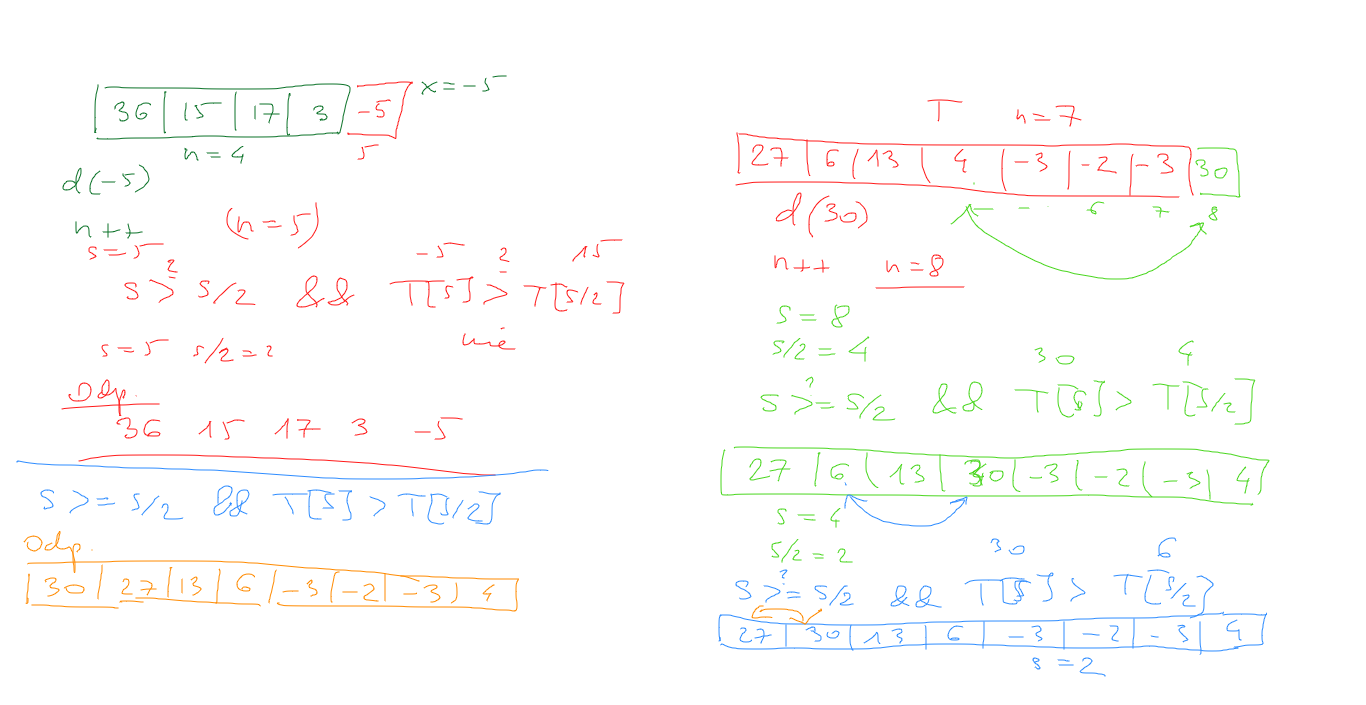 36 15 17 3 -5 x = -5
n = 4 5
d(-5)
n++ (n = 5)
s = 5 ? -5 ? 15
s > s/2 && T[s] > T[s/2]
nie
s = 5 s/2 = 2
Odp.
36 15 17 3 -5
s >= s/2 && T[s] > T[s/2]
Odp.
30 27 13 6 -3 -2 -3 4
T n = 7
27 6 13 4 -3 -2 -3 30
6 7 8
d(30)
n++ n = 8
s = 8
s/2 = 4 30 4
?
s >= s/2 && T[s] > T[s/2]
27 6 13 30 -3 -2 -3 4
s = 4
s/2 = 2 30 6
?
s >= s/2 && T[s] > T[s/2]
27 30 13 6 -3 -2 -3 4
s = 2